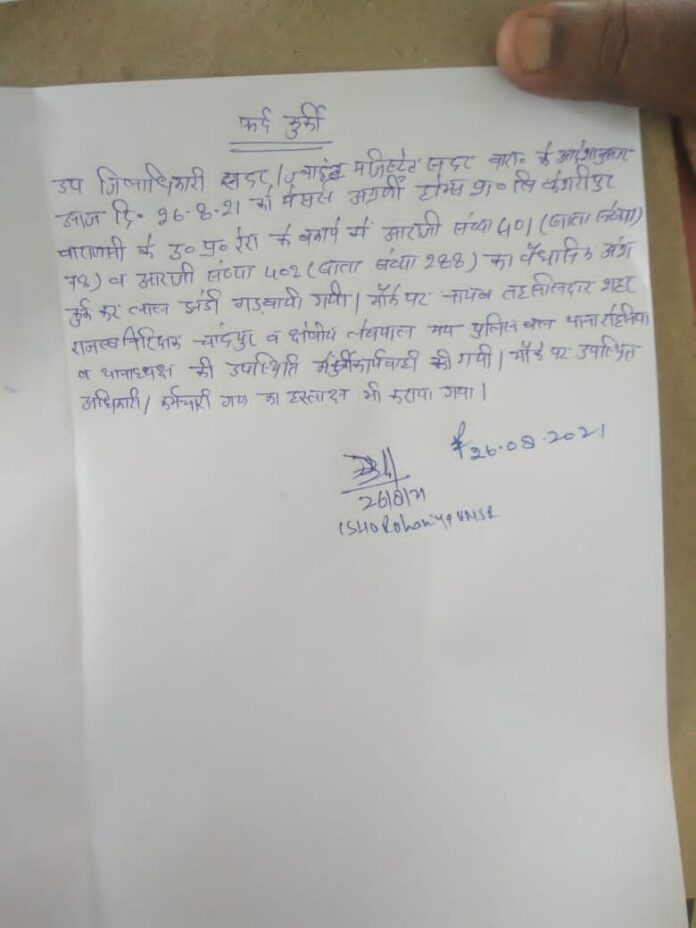 फर्द कुर्की
उप जिलाधिकारी सदर/ज्वाइंट मजिस्ट्रेट सदर वारा० के आदेशानुसार
आज दि० २६-8-21 को मेसर्स अग्रणी होम्स प्रा० लि केशरीपुर
वाराणसी के उ० प्र० रेरा के बकाये में आरजी संख्या ५०1 (खाता संख्या
७8) व आरजी संख्या ५०२ (खाता संख्या २88) का वैधानिक अंश
कुर्क कर लाल झंडी गड़वायी गयी। मौके पर नायब तहसीलदार शहर
राजस्व निरिक्षक चांदपुर व क्षेत्रीय लेखपाल मय पुलिस बल थाना रोहनिया
व थानाध्यक्ष की उपस्थिति में कुर्की कार्यवाही की गयी। मौके पर उपस्थित
अधिकारी/कर्मचारी गण का हस्ताक्षर भी कराया गया।
26.08.2021
26/8/21
SHO Rohaniya VNSR